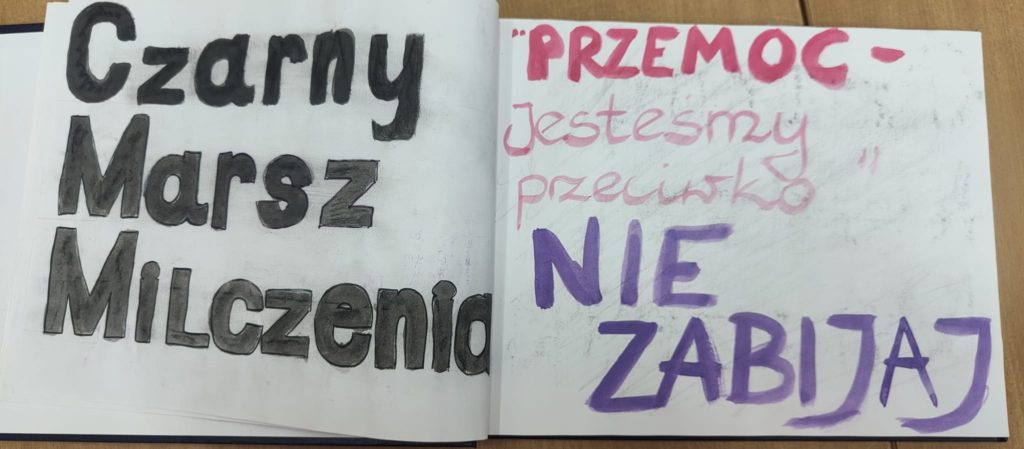 Czarny
Marsz
MiLczenia
"PRZEMOC -
Jestesmzy
przeciwko "
NIE
ZABIJAJ